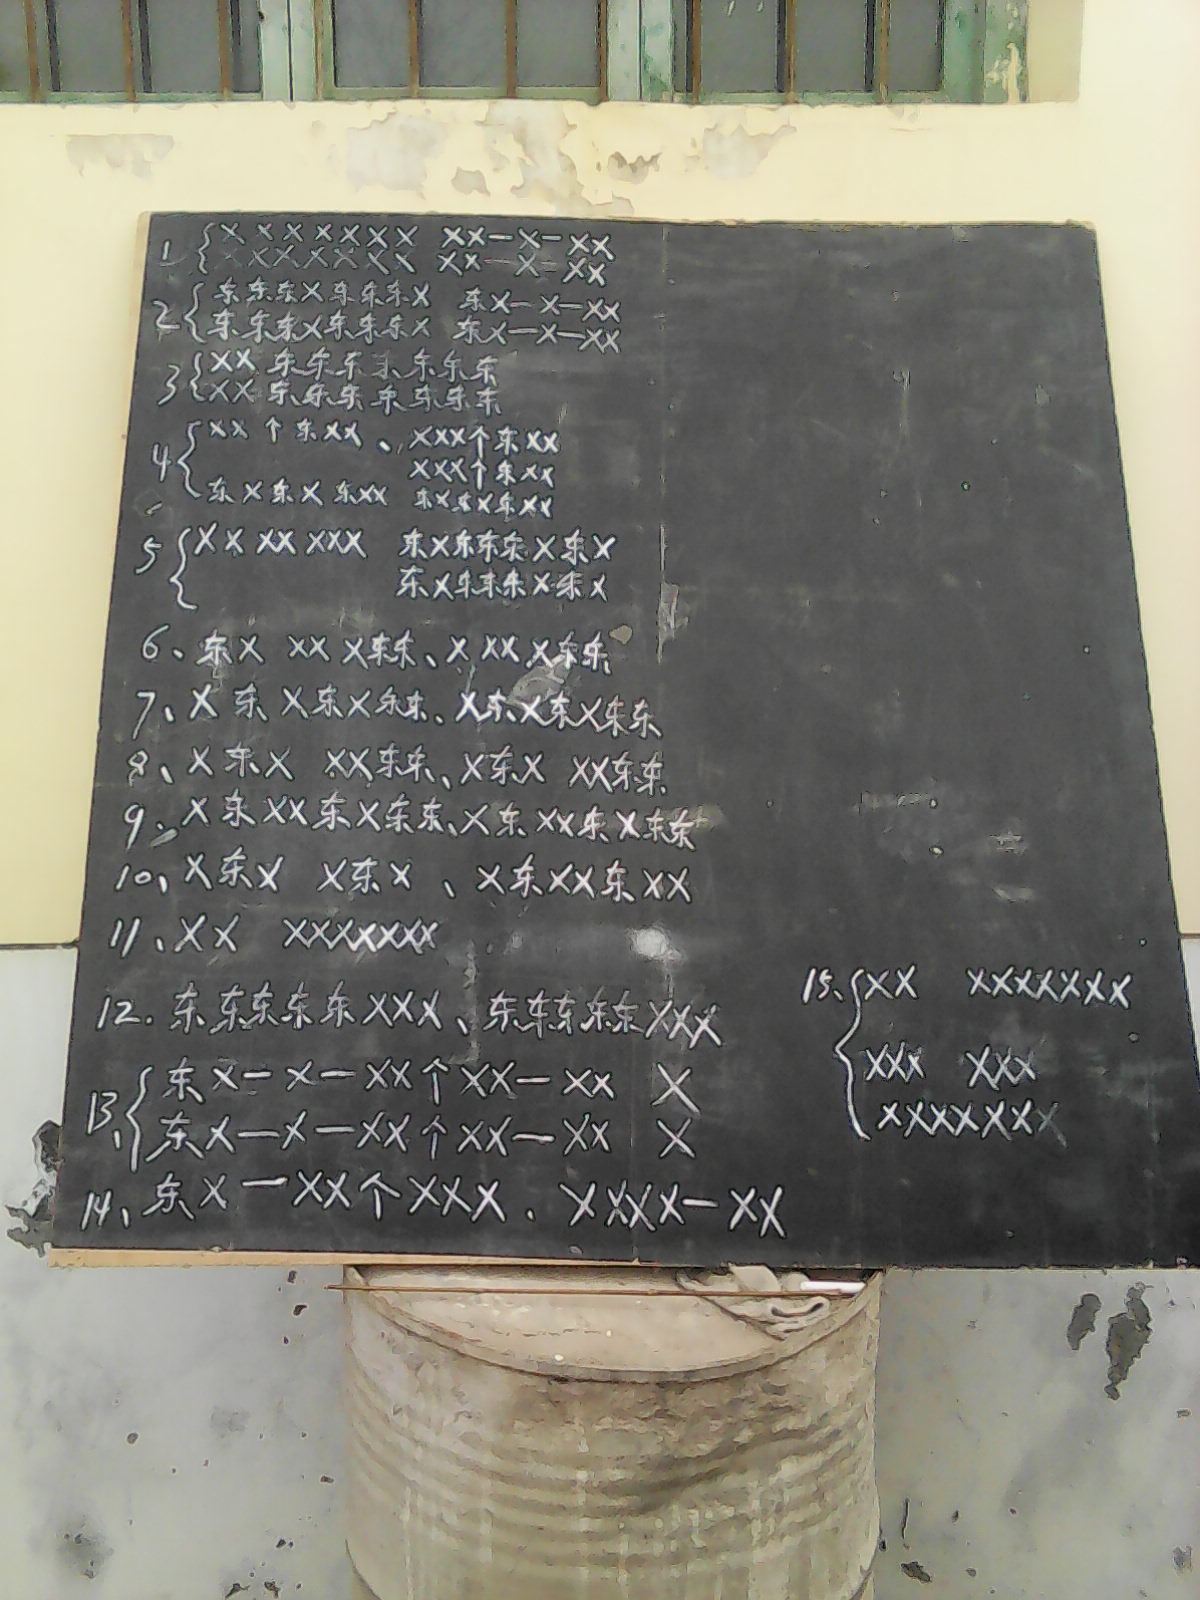 1 { X X X X X X X XX一X一XX
X X X X X X X XX一X一XX
2 { 东东东X东东东X 东X一X一XX
东东东X东东东X 东X一X一XX
3 { XX 东东东东东东东
XX 东东东东东东东
4 { XX个东XX、XXX个东XX
XXX个东XX
东X东X东XX 东X东X东XX
5 { XX XX XXX 东X东东东X东X
东X东东东X东X
6、东X XX X东东、X XX X东东
7、X东 X东X东东、X东X东X东东
8、X东X XX东东、X东X XX东东
9、X东XX东X东东、X东XX东X东东
10、X东X X东X、X东XX东XX
11、XX XXXXXXX
12.东东东东东XXX、东东东东东XXX
13、{ 东X一X一XX个XX一XX X
东X一X一XX个XX一XX X
14、东X一XX个XXX.XXXX一XX
15、{ XX XXXXXXX
XXX XXX
XXXXXXX